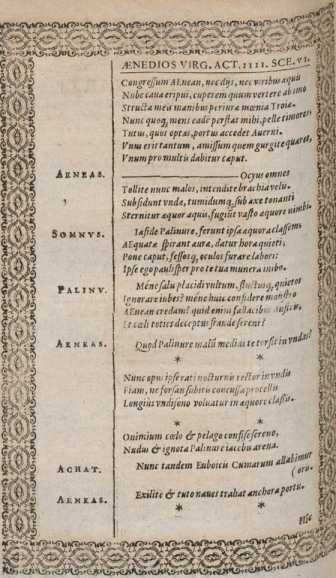 ÆNEDIOS VIRG. ACT. IIII. SCE. VI.
Congressum AEnean, nec dijs, nec viribus æquis
Nube caua eripui, cuperem quum vertere ab imo
Structa meis manibus periuræ mœnia Troiæ.
Nunc quoq; mens eadē perstat mihi, pelle timores:
Tutus, quos optas, portus accedet Auerni.
Vnus erit tantum, amissum quem gurgite quæret,
Vnum pro multis dabitur caput.
AENEAS. Ocyus omnes
Tollite nunc malos, intendite brachia velis.
Subsidunt vndæ, tumidumq; sub axe tonanti
Sternitur æquor aquis, fugiūt vasto æquore nimbi.
SOMNVS. Iaside Palinure, ferunt ipsa æquora classem
AEquatæ spirant auræ, datur hora quieti;
Pone caput, fessosq; oculos furare labori:
Ipse ego paulisper pro te tua munera inibo.
PALINV. Méne salis placidi vultum, fluctusq; quietos
Ignorare iubes? méne huic confidere monstro
AEnean credam? quid enim fallacibus Austris,
Et cœli toties deceptus fraude sereni?
AENEAS. Quod Palinure malū mediis te torsit in vndis?
* *
Nunc opus ipse rati nocturnis rector in vndis
Fiam, ne forsan subitis concussa procellis
Longius vndisono voluatur in æquore classis.
* *
O nimium cœlo & pelago confise sereno,
Nudus & ignota Palinure iacebis arena.
ACHAT. Nunc tandem Euboicis Cumarum allabimur
(oris.
AENEAS. Exilite & tuto naues trahat anchora portu.
* *